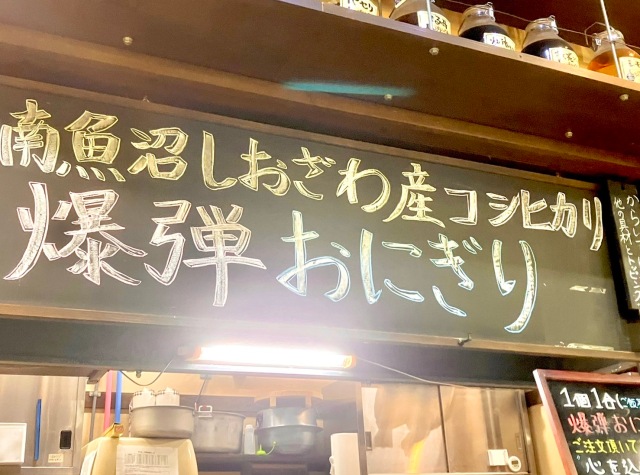 南魚沼しおざわ産コシヒカリ
爆弾おにぎり
1個1合
爆弾おに
ご注文頂いて
心を